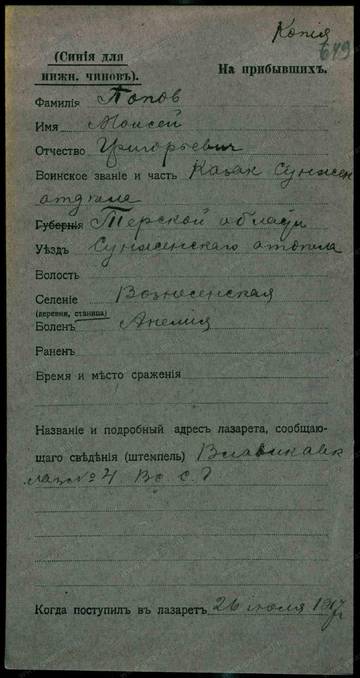 Копія
649
(Синія для
нижн. чиновъ).
На прибывшихъ.
Фамилія Попов
Имя Моисей
Отчество Григорьевич
Воинское званіе и часть Казак Сунжен
отдела
Губернія Терской области
Уѣздъ Сунженскаго отдела
Волость
Селеніе Вознесенская
(деревня, станица)
Боленъ Анемия
Раненъ
Время и мѣсто сраженія
Названіе и подробный адресъ лазарета, сообщаю-
щаго свѣдѣнія (штемпель) Владикавк
лаз № 4 Вс. С. Г
Когда поступилъ въ лазаретъ 26 июля 1917 г